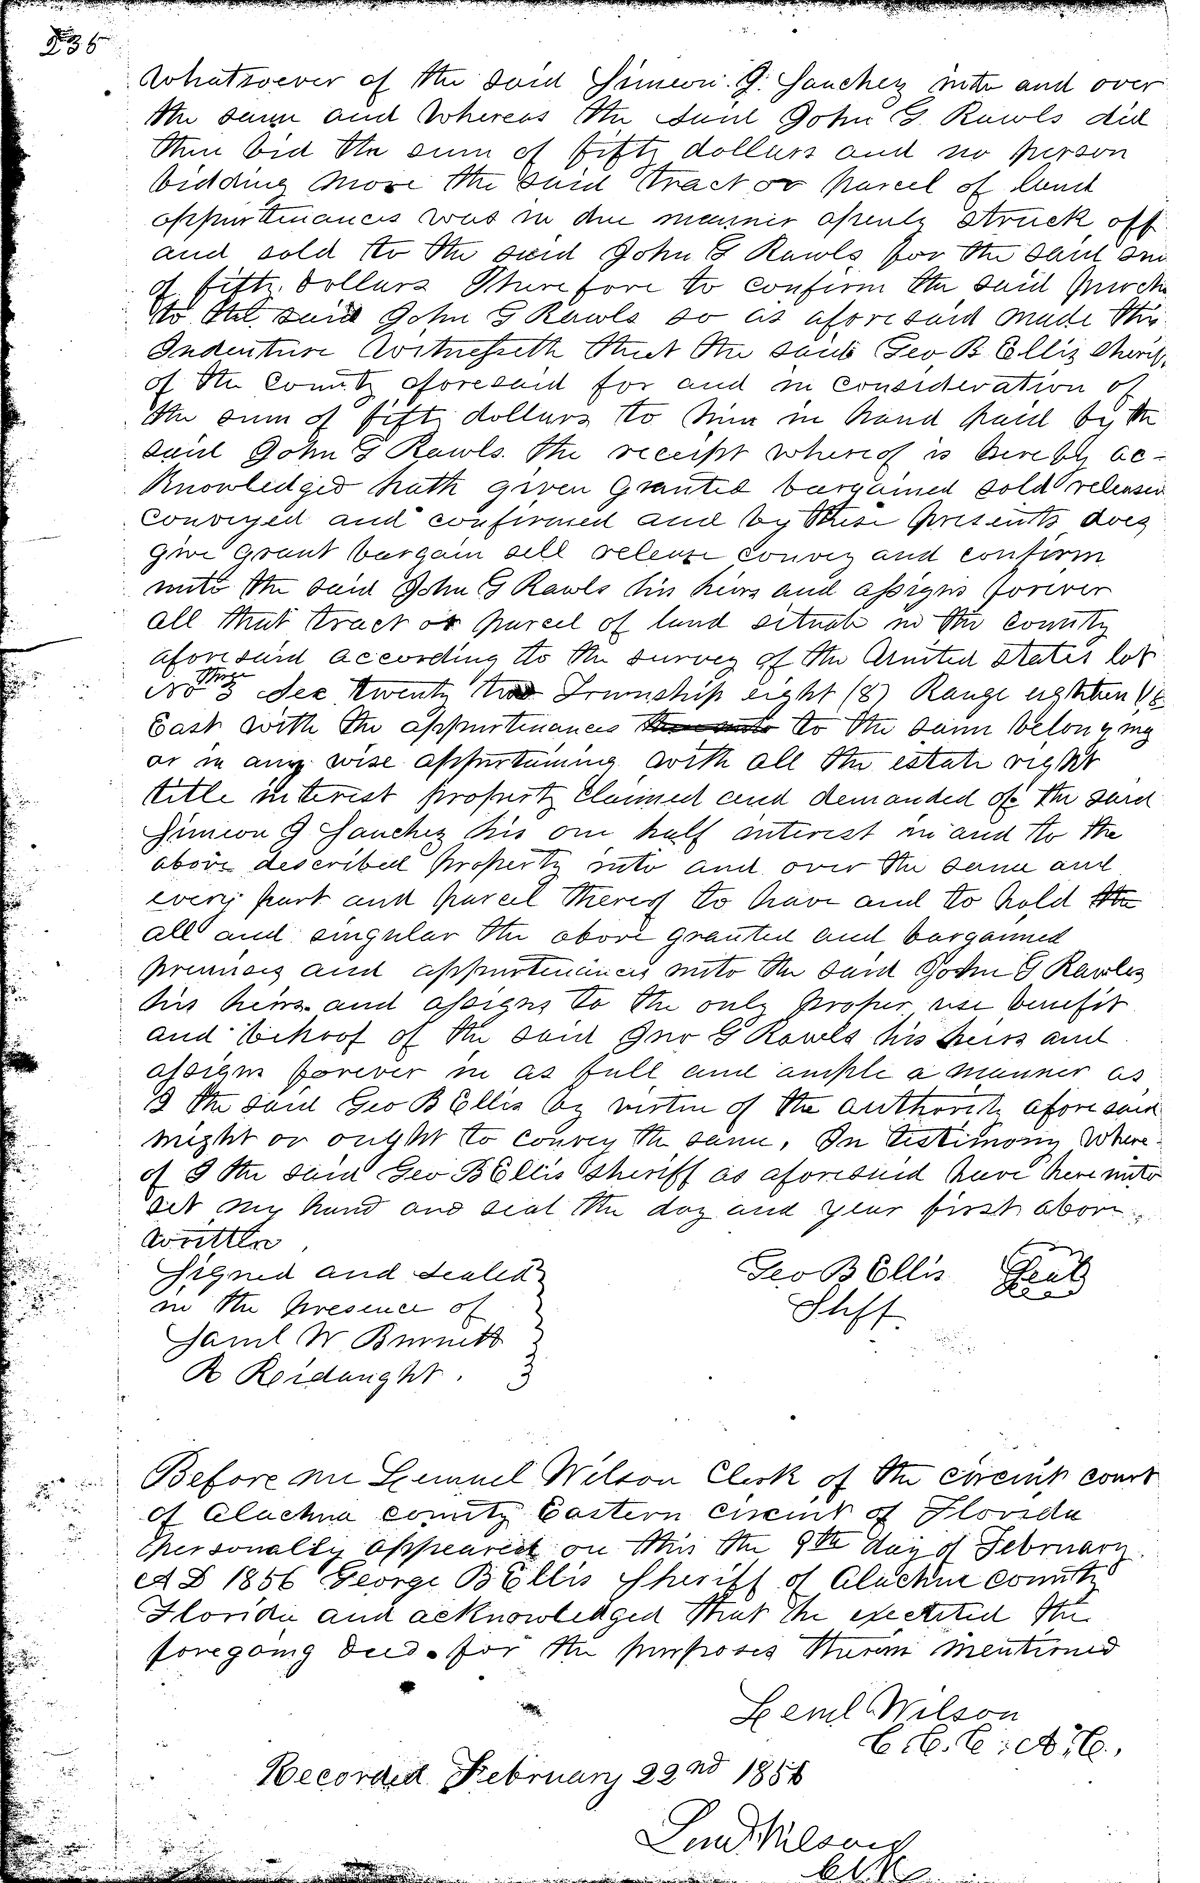 236
Whatsoever of the said Simeon J. Sanchez into and over
the same and Whereas the said John G Rawls did
then bid the sum of fifty dollars and no person
bidding more the said tract or parcel of land
appurtenances was in due manner openly struck off
and sold to the said John G Rawls for the said sum
of fifty Dollars Therefore to confirm the said purch
to the said John G Rawls so as aforesaid made this
Indenture Witnesseth that the said Geo B Ellis Sheriff
of the County aforesaid for and in consideration of
the sum of fifty dollars to him in hand paid by the
said John G Rawls the receipt whereof is hereby ac-
knowledged hath given granted bargained sold released
conveyed and confirmed and by these presents does
give grant bargain sell release convey and confirm
unto the said John G Rawls his heirs and assigns forever
all that tract or parcel of land situate in the county
aforesaid according to the survey of the United States lot
No three 3 Sec twenty two Township eight (8) Range eighteen (18
East with the appurtenances to the same belonging
or in any wise appertaining with all the estate right
title interest property claimed and demanded of the said
Simeon J Sanchez his one half interest in and to the
above described property into and over the same and
every part and parcel thereof to have and to hold the
all and singular the above granted and bargained
premises and appurtenances unto the said John G Rawls
his heirs and assigns to the only proper use benefit
and behoof of the said Jno G Rawls his heirs and
assigns forever in as full and ample a manner as
I the said Geo B Ellis by virtue of the authority aforesaid
might or ought to convey the same. In testimony Where-
of I the said Geo B Ellis Sheriff as aforesaid have hereunto
set my hand and seal the day and year first above
written
Signed and sealed
in the presence of
Saml W Burnett
R Reidaught.
Geo B Ellis Seal
Shff.
Before me Lemuel Wilson Clerk of the circuit court
of Alachua county Eastern Circuit of Florida
personally appeared on this the 9th day of February
AD 1856 George B Ellis Sheriff of Alachua county
Florida and acknowledged that he executed the
foregoing deed for the purposes therein mentioned
Leml Wilson
C.C.C. A.C.
Recorded February 22nd 1856
Leml Wilson
Clk